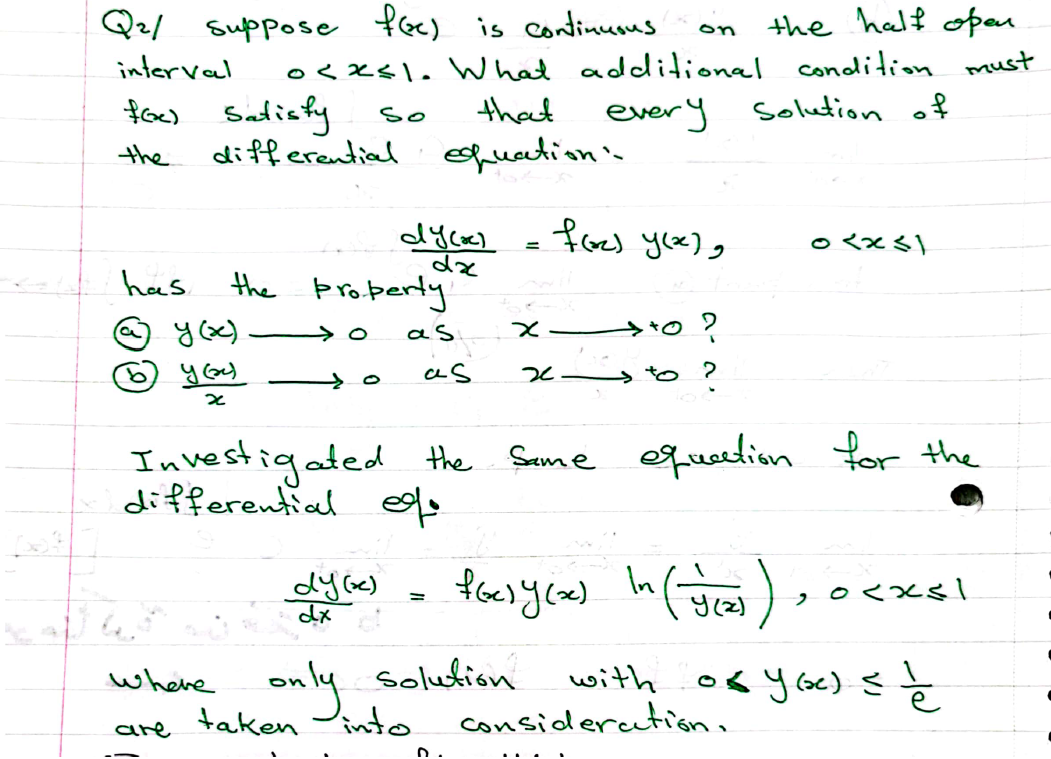 Q2/ suppose f(x) is continuous on the half open
interval 0<x≤1. What additional condition must
f(x) satisfy so that every solution of
the differential equation:-
dy(x)/dx = f(x) y(x), 0<x≤1
has the property
ⓐ y(x) ⟶ 0 as x ⟶ +0 ?
ⓑ y(x)/x ⟶ 0 as x ⟶ +0 ?
Investigated the same equation for the
differential eq.
dy(x)/dx = f(x) y(x) ln(1/y(x)), 0<x≤1
where only solution with 0≤ y(x) ≤ 1/e
are taken into consideration.